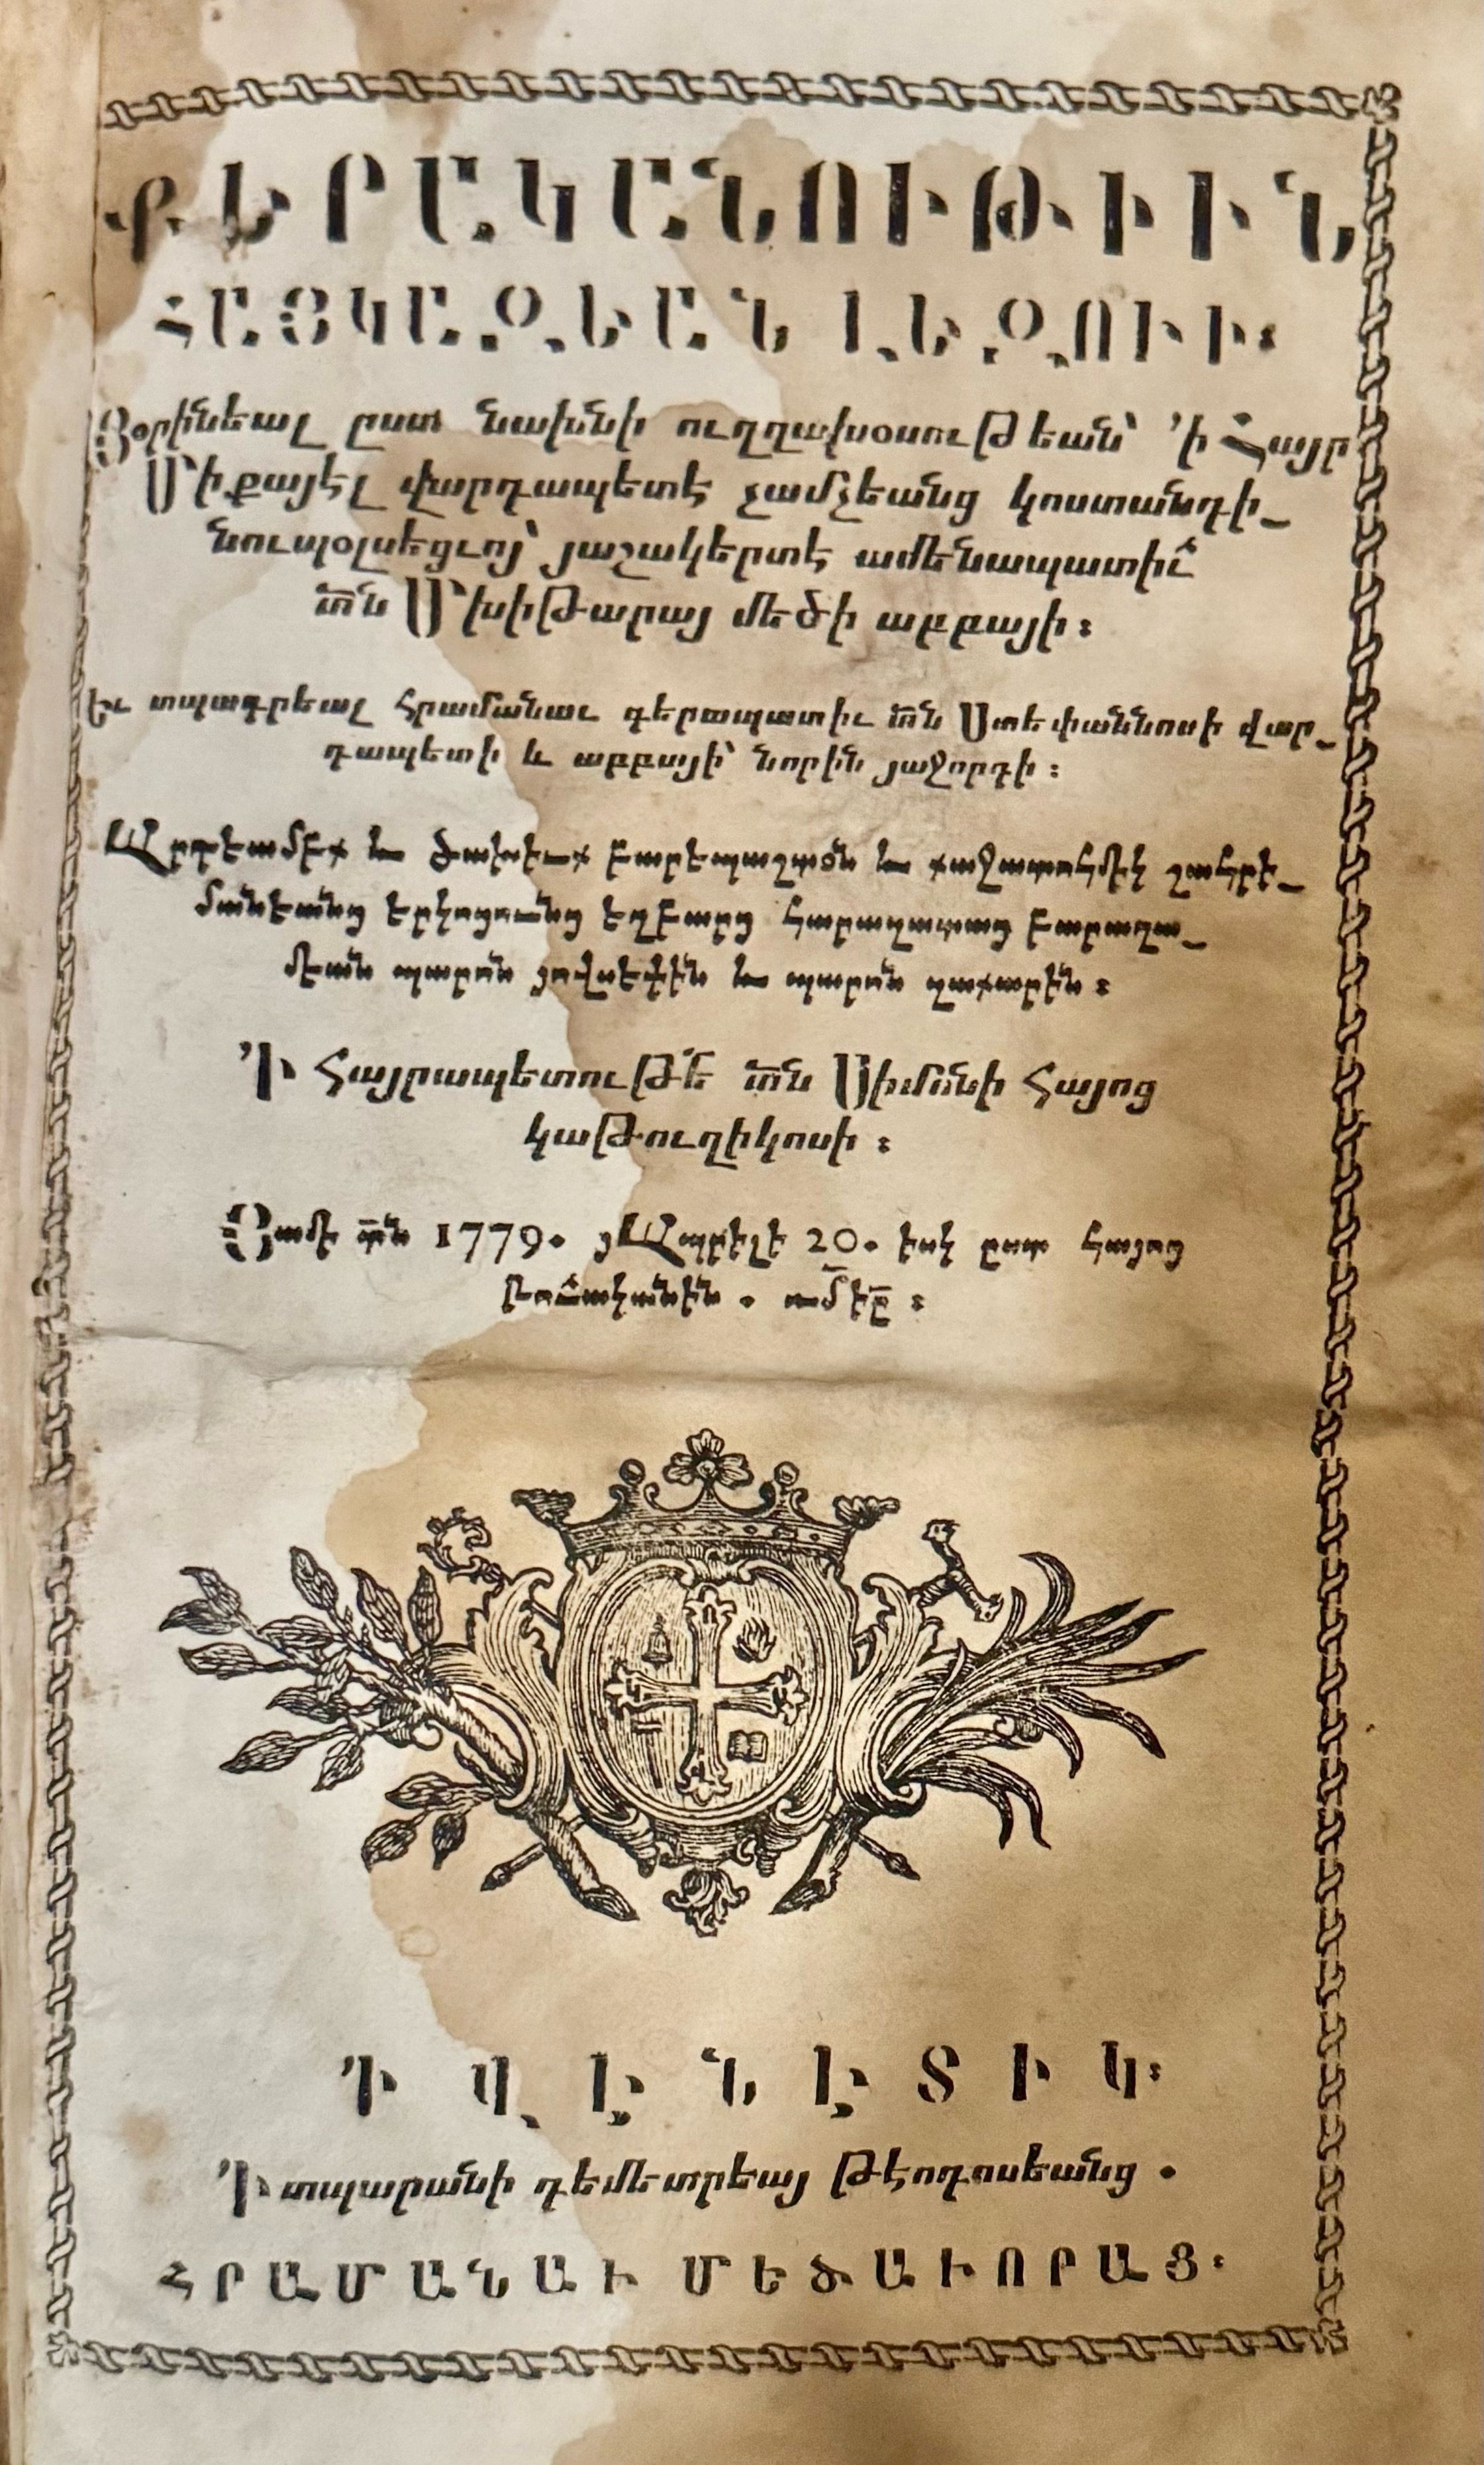 ՔԵՐԱԿԱՆՈՒԹԻՒՆ
ՀԱՅԿԱԶԵԱՆ ԼԵԶՈՒԻ։
Յօրինեալ ըստ նախնի ուղղախօսութեան՝ 'ի Հայր
Միքայէլ վարդապետէ չամչեանց կոստանդի֊
նուպօլսեցւոյ՝ յաշակերտէ ամենապատիւ
տն Մխիթարայ մեծի աբբայի։
Եւ տպագրեալ հրամանաւ գերապատիւ տն Ստեփաննոսի վար֊
դապետի և աբբայի՝ նորին յաջորդի։
Արդեամբք և ծախիւք բարեպաշտօն և քաջատոհմիկ շահրի֊
մանեանց երկոցունց եղբարց հարազատաց բարաղա֊
մեան պարոն յովսեփին և պարոն զաքարին։
'Ի Հայրապետութե տն Սիմօնի Հայոց
կաթուղիկոսի։
Յամի տն 1779. յԱպրիլի 20. իսկ ըստ հայոց
թուականին . ռմիը։
Պ
Հ
Կ
Ա
'Ի ՎԷՆԷՏԻԿ։
'Ի տպարանի դեմետրեայ թէոդոսեանց .
ՀՐԱՄԱՆԱՒ ՄԵԾԱՒՈՐԱՑ։